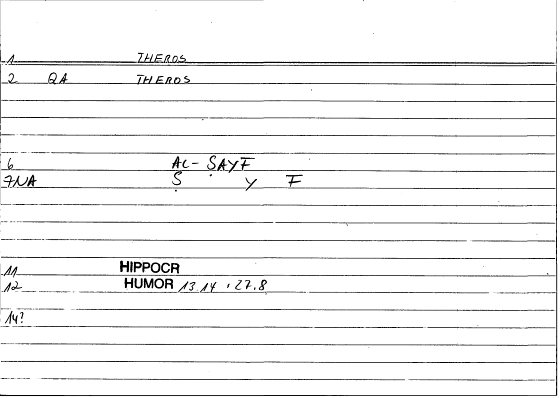 1 THEROS
2 QA THEROS
6 AL-ṢAYF
7NA Ṣ Y F
11 HIPPOCR
12 HUMOR 13.14 , 27.8
14?